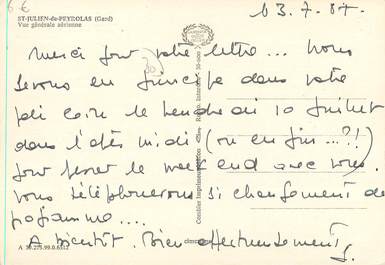 6€
ST-JULIEN-de-PEYROLAS (Gard)
Vue générale aérienne
13.7.87.
Merci pour votre lettre... Nous
serons en principe dans votre
joli coin le vendredi 10 juillet
dans l'après midi (ou en fin...?!)
pour passer le week end avec vous.
Vous téléphonerons si changement de
programme....
A bientôt. Bien affectueusement
A 30.279.99.0.6312